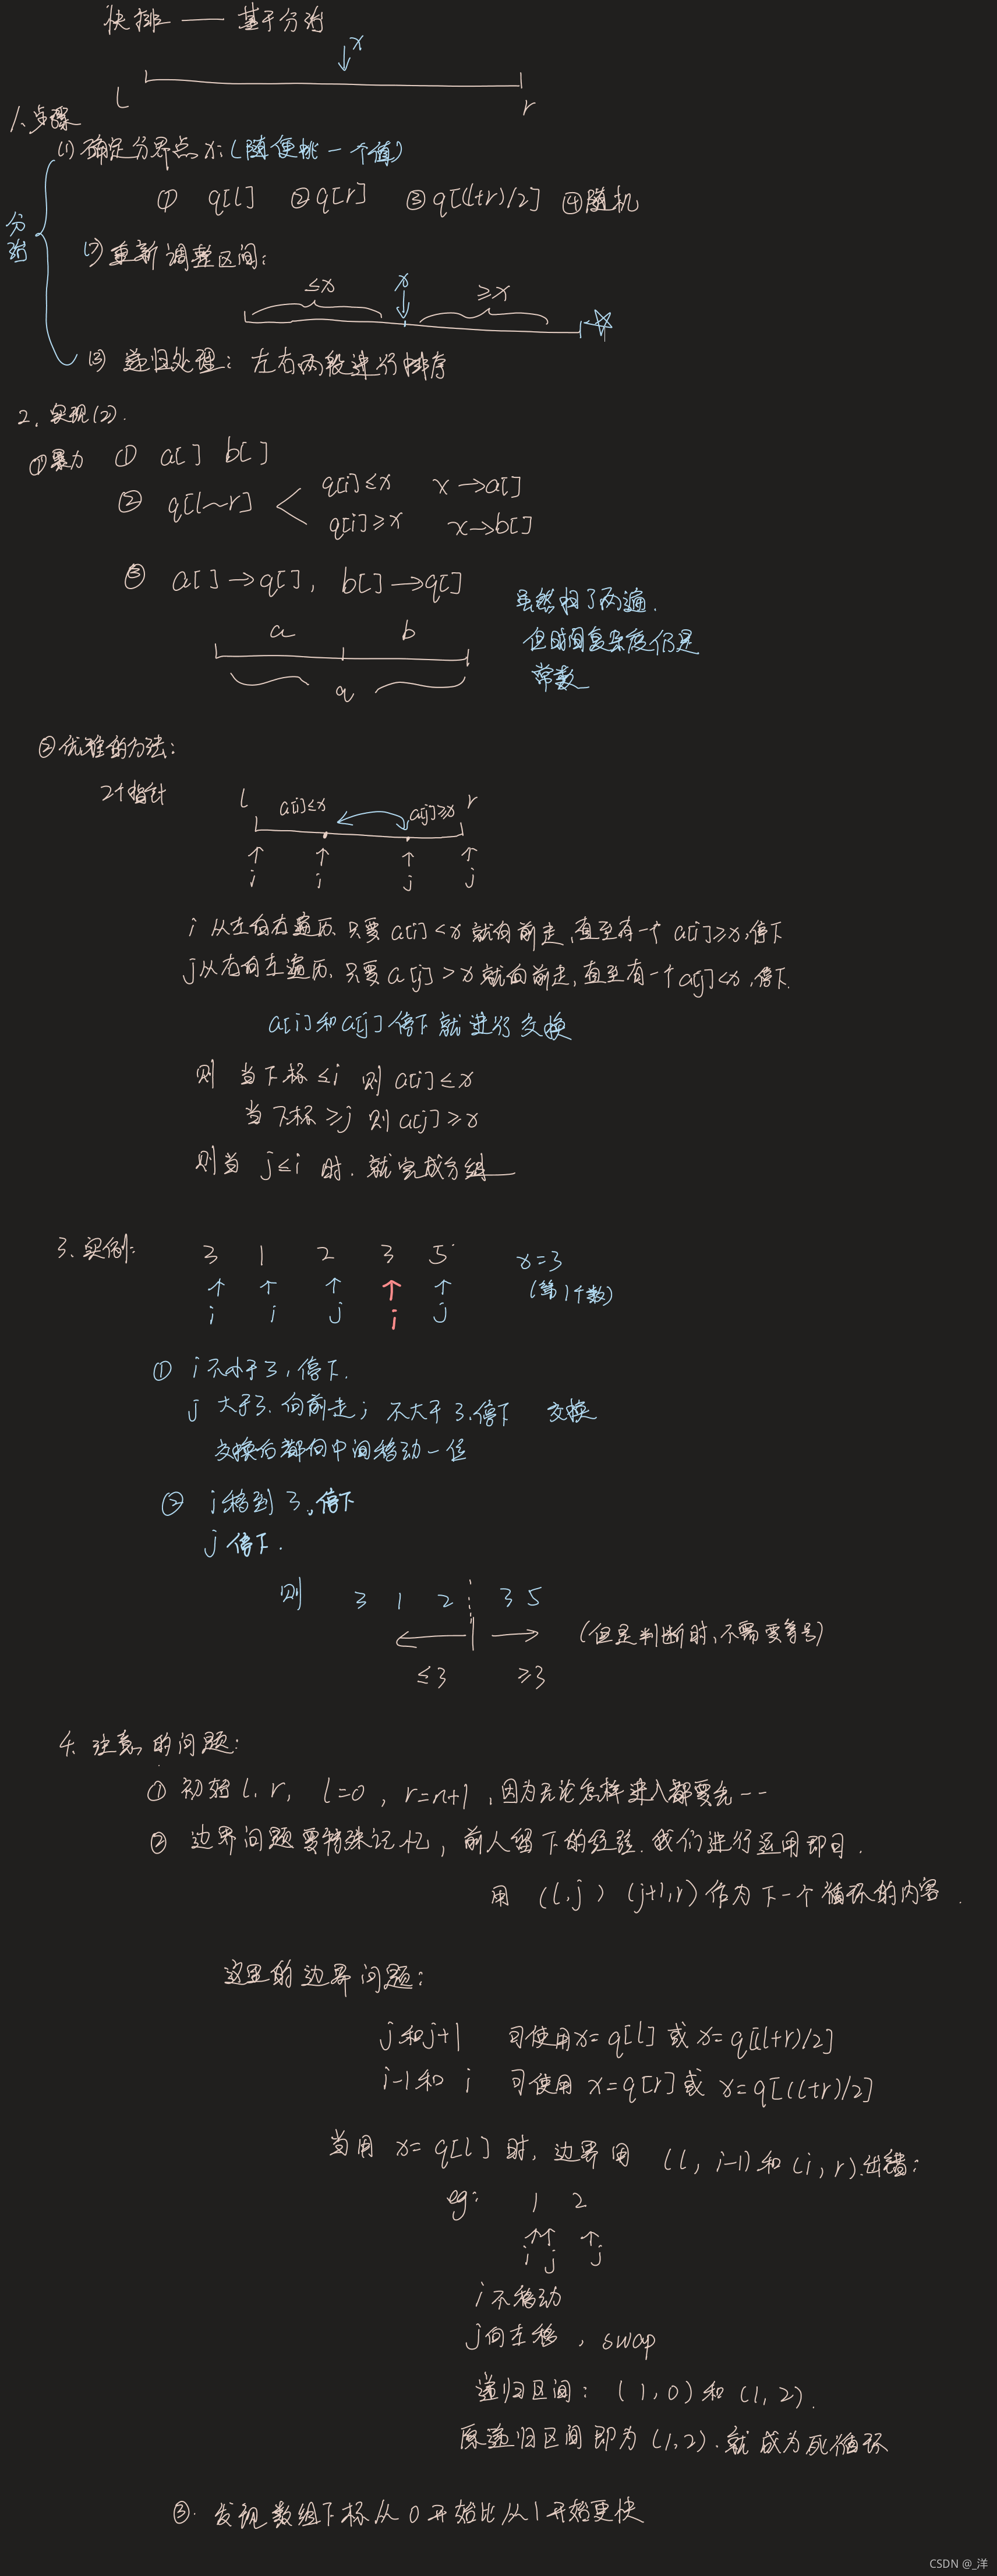 快排 —— 基于分治
x
l
r
1、步骤
(1) 确定分界点 x:(随便挑一个值)
① q[l] ②q[r] ③q[(l+r)/2] ④随机
分治
(2) 重新调整区间:
≤x x ≥x
(3) 递归处理: 左右两段进行排序
2、实现(2).
①暴力 ① a[] b[]
② q[l~r] q[i]≤x x→a[]
q[i]≥x x→b[]
③ a[]→q[], b[]→q[]
虽然扫了两遍.
但时间复杂度仍是
常数
a b
q
②优雅的方法:
2个指针
l a[i]≤x a[j]≥x r
i i j j
i 从左向右遍历、只要 a[i]<x 就向前走,直至有一个 a[i]≥x,停下
j从右向左遍历、只要a[j]>x就向前走,直至有一个a[j]<x,停下.
a[i]和a[j]停下就进行交换
则 当下标≤i 则 a[i]≤x
当下标≥j 则 a[j]≥x
则当 j≤i 时. 就完成分组
3、实例: 3 1 2 3 5 x=3
(第1个数)
i i j i j
① i不小于3,停下.
j 大于3、向前走; 不大于3,停下 交换
交换后都向中间移动一位
② i移到3,停下
j 停下.
则 3 1 2 3 5
(但是判断时、不需要等号)
≤3 ≥3
4. 注意的问题:
① 初始 l, r, l=0, r=n+1,因为无论怎样进入都要先--
② 边界问题要特殊记忆, 前人留下的经验. 我们进行运用即可.
用 (l,j) (j+1,r)作为下一个循环的内容.
这里的边界问题:
j和j+1 可使用x=q[l] 或 x=q[(l+r)/2]
i-1和 i 可使用 x=q[r]或 x=q[(l+r)/2]
当用 x=q[l]时, 边界用 (l, i-1)和(i, r).出错:
eg: 1 2
i j j
i不移动
j向左移, swap
递归区间: (1,0)和(1,2).
原递归区间即为(1,2).就成为死循环
③. 发现数组下标从0开始比从1开始更快
CSDN @_洋